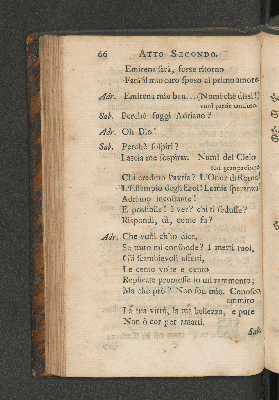 66 ATTO SECONDO.
Emirena sarà, forse ritorno
Farà il mio caro sposo al primo amore.
Adr. Emirena mio ben... (Numi che dissi!)
vuol partir confuso.
Sab. Perchè fuggi Adriano?
Adr. Oh Dio!
Sab. Perchè sospiri?
Lascia me sospirar. Numi del Cielo
con gran passione
Chi creduto l'avria? L'Onor di Roma!
L'Essempio degli Eroi! La mia speranza!
Adriano incostante!
E' possibile? è ver? chi ti sedusse?
Rispondi, dì, come fu?
Adr. Che vuoi ch'io dica,
Se tutto mi confonde? I merti tuoi,
Gli scambievoli affetti,
Le cento volte e cento
Replicate promesse io mi rammento;
Ma che prò? Non son mio. Conosco
ammiro
La tua virtù, la tua bellezza, e pure
Non ò cor per amarti.
Sab.